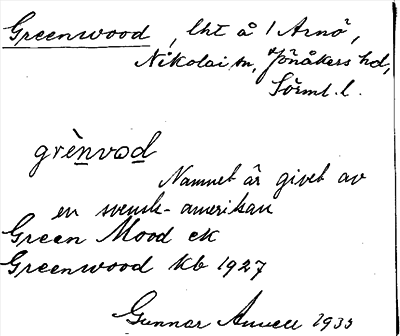 Greenwood, lht å / Arnö,
Nikolai sn, Jönåkers hd,
Sörml. l.
grènvod
Namnet är givet av
en svensk-amerikan
Green Mood ek
Greenwood kb 1927
Gunnar 1935